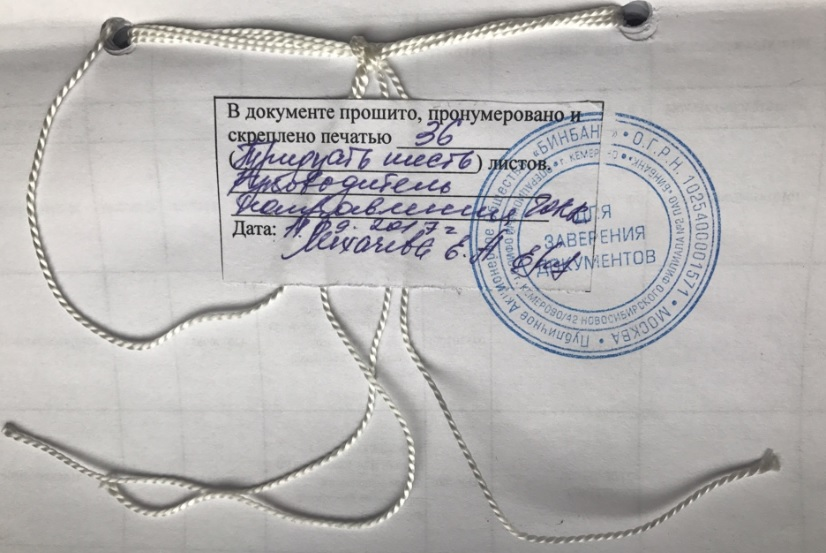 В документе прошито, пронумеровано и
скреплено печатью 36
(Тридцать шесть) листов.
Руководитель
направления
Дата: 2017 г
Лихачева Е. А
Публичное Акционерное общество «БИНБАНК» • О.Г.Р.Н. 1025400001571 • МОСКВА •
КЕМЕРОВО/42 НОВОСИБИРСКОГО ФИЛИАЛА №2 ПАО «БИНБАНК» • г. КЕМЕРОВО •
ДЛЯ
ЗАВЕРЕНИЯ
ДОКУМЕНТОВ